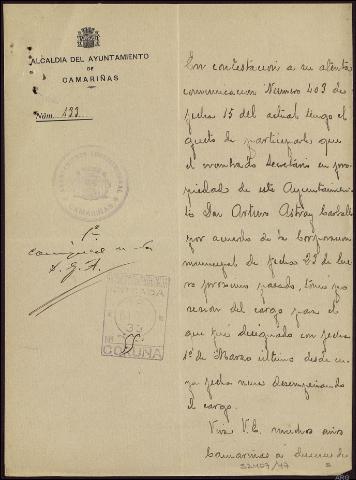 ALCALDIA DEL AYUNTAMIENTO
DE
CAMARIÑAS
Núm. 433
CAMARIÑAS
1º
S. G. A.
ENTRADA
CORUÑA
En contestacion a su atenta
comunicacion Numero 403 de
fecha 15 del actual tengo el
gusto de participarle que
el nombrado Secretario en pro-
piedad de este Ayuntamien-
to Don Arturo Astray Carballo
por acuerdo de la Corporacion
municipal de fecha 23 de Ene-
ro proximo pasado, tomo po-
sesion del cargo para el
que fué designado con fecha
1º de Marzo ultimo desde cu-
ya fecha viene desempeñando
el cargo.
Viva V.E. muchos años
Camariñas a de
32407/47
ARG